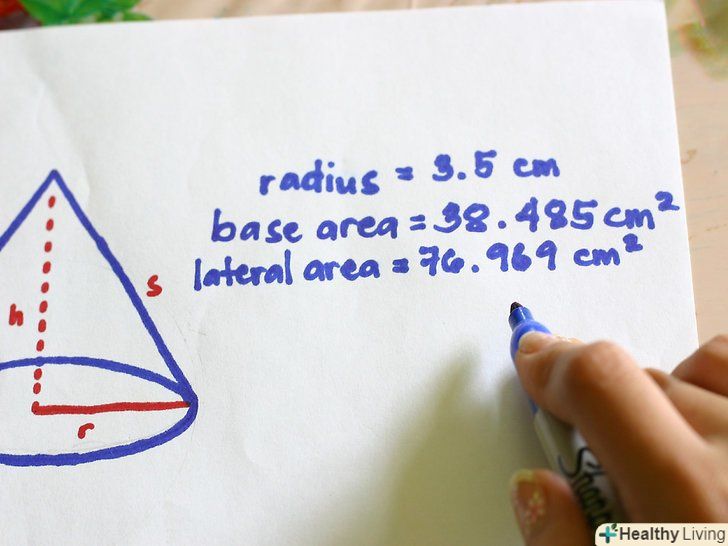 radius = 3.5 cm
base area = 38.485 cm²
lateral area = 76.969 cm²
s
h
r
Healthy Living